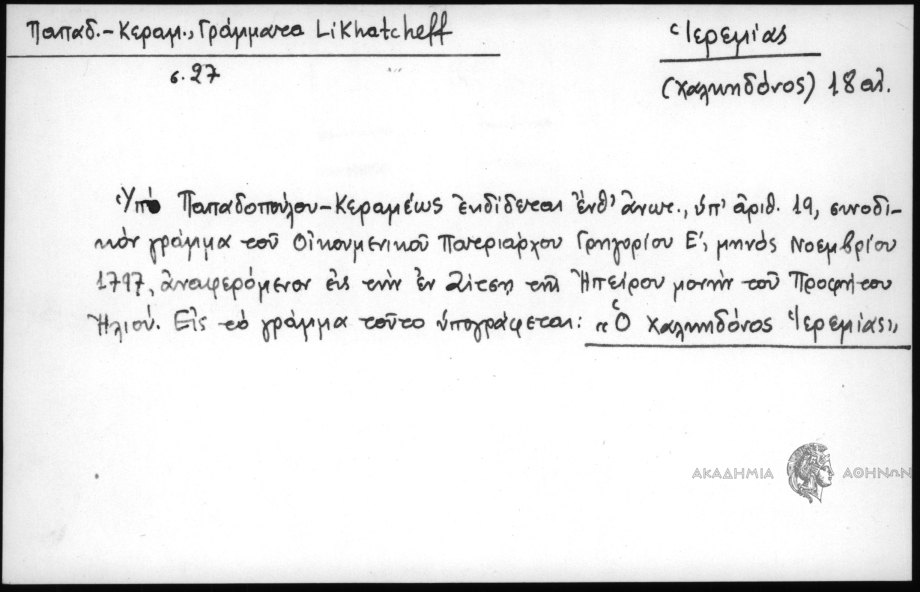 Παπαδ.-Κεραμ., Γράμματα Likhatcheff
σ. 27
Ἱερεμίας
(Χαλκηδόνος) 18 αἰ.
Ὑπὸ Παπαδοπούλου-Κεραμέως ἐκδίδεται ἔνθ' ἀνωτ., ὑπ' ἀριθ. 19, συνοδι-
κὸν γράμμα τοῦ Οἰκουμενικοῦ Πατριάρχου Γρηγορίου Ε', μηνὸς Νοεμβρίου
1797, ἀναφερόμενον εἰς τὴν ἐν Ζίτσῃ τῆς Ἠπείρου μονὴν τοῦ Προφήτου
Ἠλιού. Εἰς τὸ γράμμα τοῦτο ὑπογράφεται: «Ὁ Χαλκηδόνος Ἱερεμίας»
ΑΚΑΔΗΜΙΑ ΑΘΗΝΩΝ